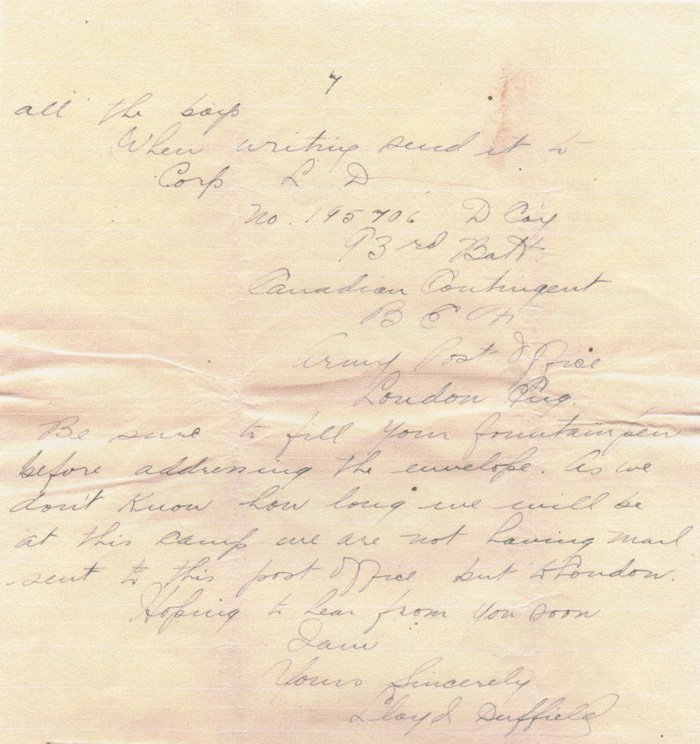 7
all the boys
When writing send it to
Corp L D
No. 195706 D Coy
93rd Batt.
Canadian Contingent
B E F
Army Post Office
London Eng.
Be sure to fill your fountainpen
before addressing the envelope. As we
don't know how long we will be
at this camp we are not having mail
sent to this post office but to London.
Hoping to hear from you soon
I am
Yours Sincerely
Lloyd Duffield